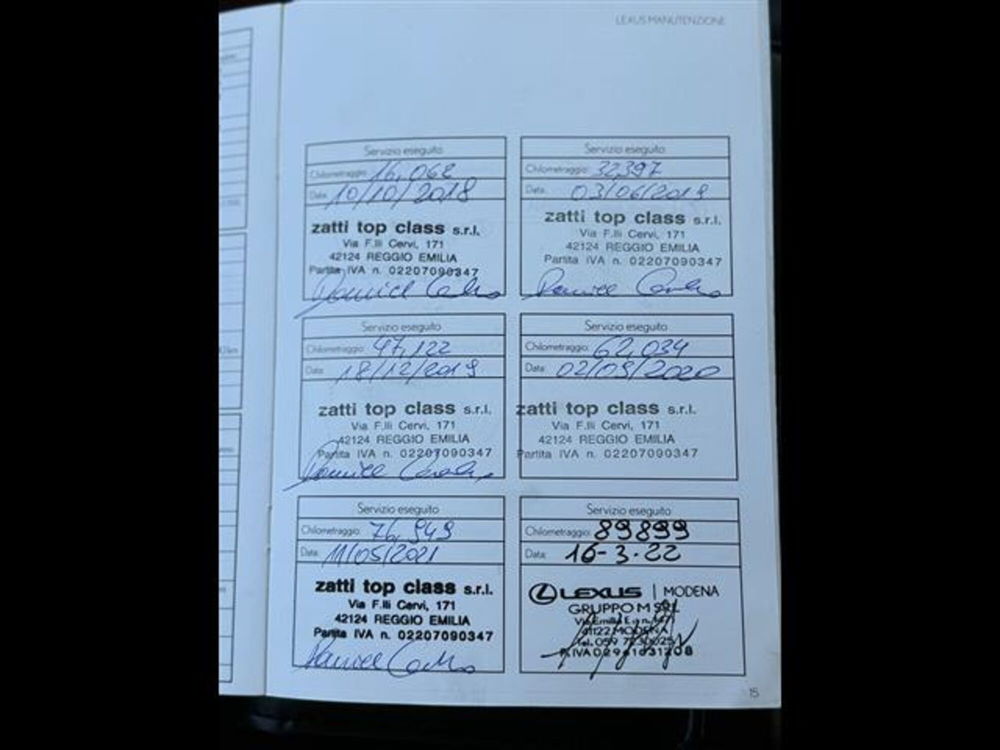 LEXUS MANUTENZIONE
Servizio eseguito
Chilometraggio: 16,068
Data: 10/10/2018
zatti top class s.r.l.
Via F.lli Cervi, 171
42124 REGGIO EMILIA
Partita IVA n. 02207090347
Servizio eseguito
Chilometraggio: 32,397
Data: 03/06/2019
zatti top class s.r.l.
Via F.lli Cervi, 171
42124 REGGIO EMILIA
Partita IVA n. 02207090347
Servizio eseguito
Chilometraggio: 47,122
Data: 18/12/2019
zatti top class s.r.l.
Via F.lli Cervi, 171
42124 REGGIO EMILIA
Partita IVA n. 02207090347
Servizio eseguito
Chilometraggio: 62,034
Data: 02/09/2020
zatti top class s.r.l.
Via F.lli Cervi, 171
42124 REGGIO EMILIA
Partita IVA n. 02207090347
Servizio eseguito
Chilometraggio: 76,949
Data: 11/05/2021
zatti top class s.r.l.
Via F.lli Cervi, 171
42124 REGGIO EMILIA
Partita IVA n. 02207090347
Servizio eseguito
Chilometraggio: 89899
Data: 16-3-22
LEXUS | MODENA
GRUPPO M SRL
41122 MODENA
15